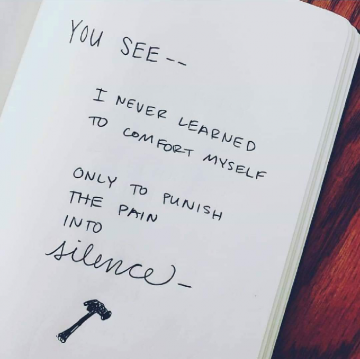 YOU SEE--
I NEVER LEARNED
TO COMFORT MYSELF
ONLY TO PUNISH
THE PAIN
INTO
silence-